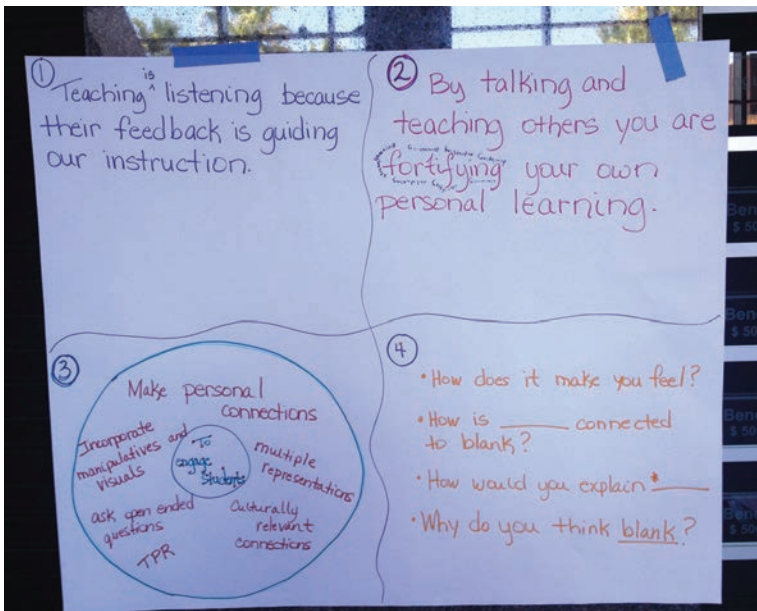 ①
Teaching is listening because
their feedback is guiding
our instruction.
②
By talking and
teaching others you are
fortifying your own
personal learning.
③
Make personal
connections
Incorporate
manipulatives and
visuals
To
engage
students
multiple
representations
ask open ended
questions
Culturally
relevant
connections
TPR
④
• How does it make you feel?
• How is ______ connected
to blank?
• How would you explain *____
• Why do you think blank?
Ben
$ 50
Ben
$ 50
Ben
$ 50
Ben
$ 50